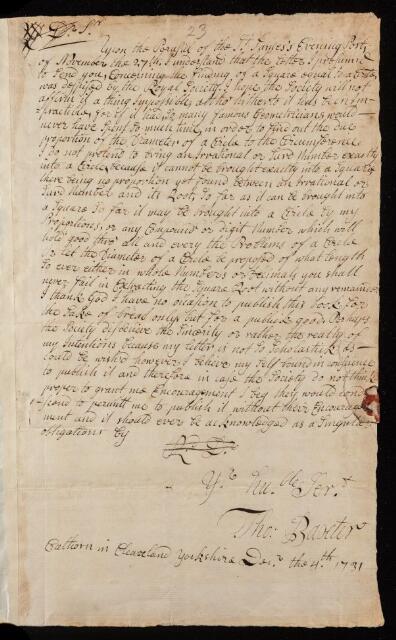 23
Sr.
Upon the Perusall of the St. James's Evening Post,
of November the 27th. I understand that the Letter I presum'd
to send you, Concerning the finding of a Square equal to a Circle
was despised by the Royal Society, I hope, the Society will not
affirm it a thing impossible, altho' hitherto it has been im-
practicable, for if it had, so many famous Geometricians would
never have spent so much time, in order to find out the due
proportion of the Diameter of a Circle to the Circumference
I do not pretend to bring an Irrational or Surd Number exactly
into a Circle because it cannot be brought exactly into a Square
there being no proportion yet found between an Irrational or
Surd Number and its Root, So far as it can be brought into
a Square So far it may be brought into a Circle by my
Proportions, or any Compound or digit Number which will
hold good thro' all and every the Problems of a Circle
or let the Diameter of a Circle be proposed of what length
So ever either in whole Numbers or Decimals you shall
never fail in Extracting the Square Root without any remainder
I thank God I have no ocation to publish this Book for
the Sake of bread only but for a publick good Perhaps
the Society disbelieve the Sincerity or rather the reality of
my Intentions because my Letter is not so Scholastick as
could be wish'd however I believe my Self bound in conscience
to publish it and therefore in case the Society do not think
proper to grant me Encouragement I beg they would cond-
scend to permitt me to publish it without their Encourage
ment and it should ever be acknowledged as a Singular
obligation by
Yr. hu.ble Ser.t
Tho: Baxter
Crathorn in Cleaveland Yorkshire Decr. the 4th. 1731